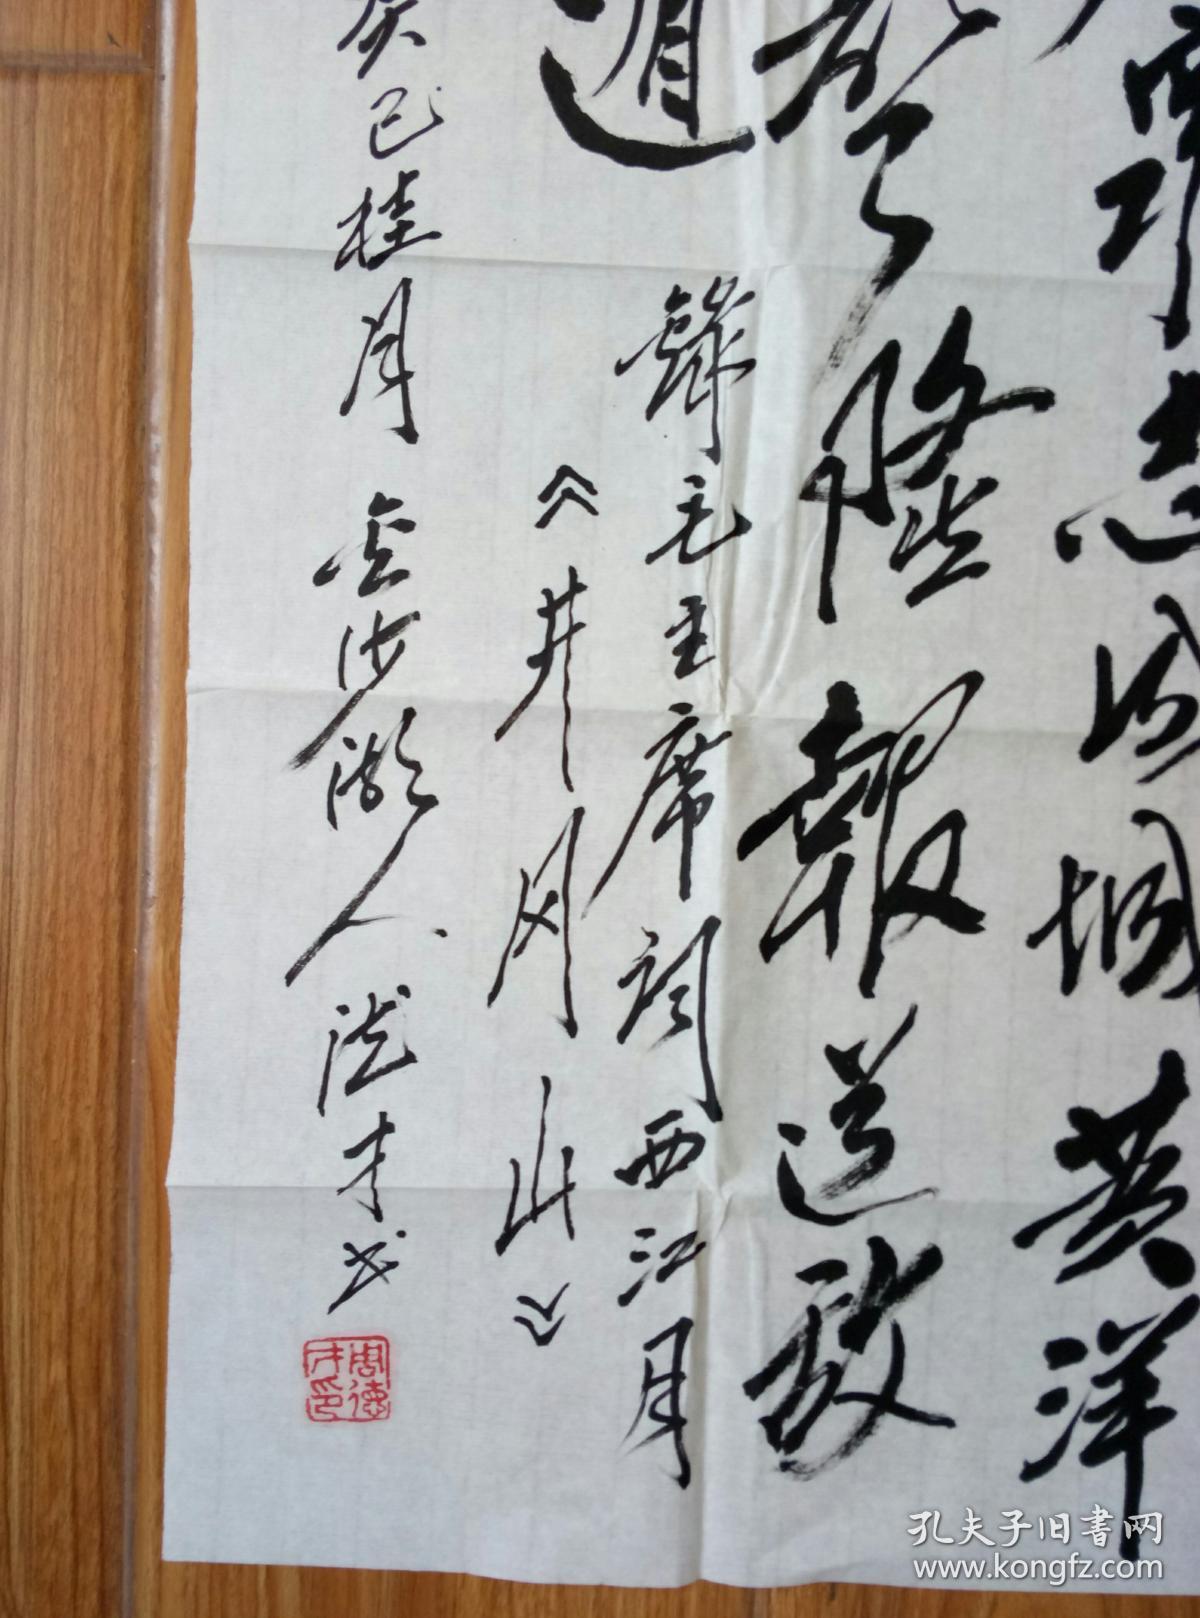 眾志成城黄洋
聲隆報道敌
遁
錄毛主席词西江月
《井冈山》
癸巳桂月金沙湖人德才书
周德才印
孔夫子旧書网
www.kongfz.com